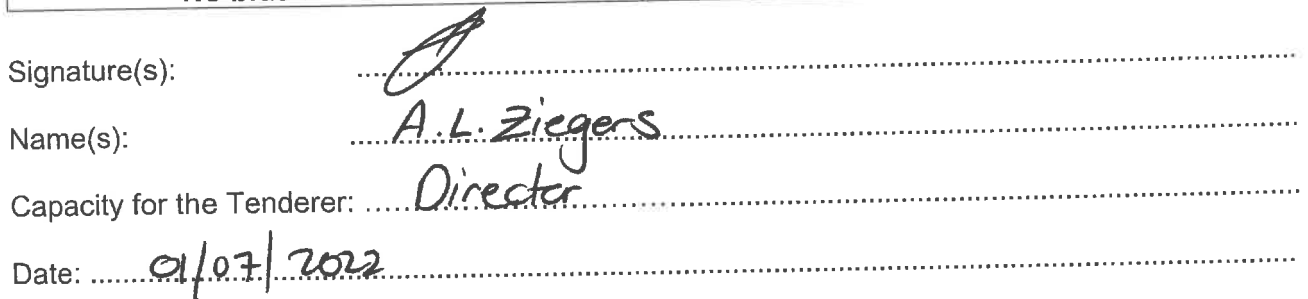 Signature(s):
Name(s): A.L. Ziegers
Capacity for the Tenderer: Director
Date: 01/07/2022